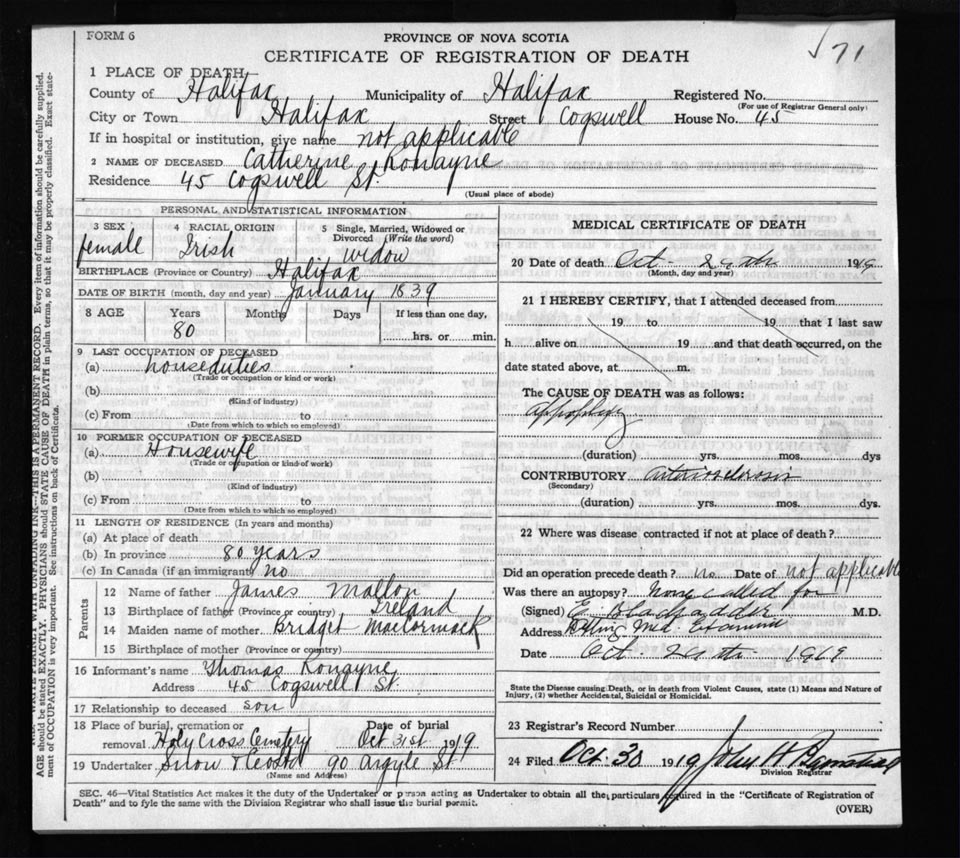 FORM 6
PROVINCE OF NOVA SCOTIA
CERTIFICATE OF REGISTRATION OF DEATH
71
1 PLACE OF DEATH
County of Halifax Municipality of Halifax Registered No.
(For use of Registrar General only)
City or Town Halifax Street Cogswell House No. 45
If in hospital or institution, give name not applicable
2 NAME OF DECEASED Catherine Ronayne
Residence 45 Cogswell St.
(Usual place of abode)
PERSONAL AND STATISTICAL INFORMATION
3 SEX female
4 RACIAL ORIGIN Irish
5 Single, Married, Widowed or Divorced (Write the word) widow
BIRTHPLACE (Province or Country) Halifax
DATE OF BIRTH (month, day and year) January 1839
8 AGE Years 80 Months Days If less than one day,
hrs. or min.
9 LAST OCCUPATION OF DECEASED
(a) houseduties
(Trade or occupation or kind or work)
(b)
(Kind of industry)
(c) From to
(Date from which to which so employed)
10 FORMER OCCUPATION OF DECEASED
(a) Housewife
(Trade or occupation or kind of work)
(b)
(Kind of industry)
(c) From to
(Date from which to which so employed)
11 LENGTH OF RESIDENCE (In years and months)
(a) At place of death
(b) In province 80 years
(c) In Canada (if an immigrant) no
Parents
12 Name of father James Mallon
13 Birthplace of father (Province or country) Ireland
14 Maiden name of mother Bridget MacCormack
15 Birthplace of mother (Province or country)
16 Informant's name Thomas Ronayne
Address 45 Cogswell St.
17 Relationship to deceased son
18 Place of burial, cremation or removal Holy Cross Cemetery Date of burial Oct 31st 1919
19 Undertaker 90 Argyle St.
(Name and Address)
MEDICAL CERTIFICATE OF DEATH
20 Date of death Oct 1919
(Month, day and year)
21 I HEREBY CERTIFY, that I attended deceased from
19 to 19 that I last saw
h alive on 19 and that death occurred, on the
date stated above, at m.
The CAUSE OF DEATH was as follows:
(duration) yrs. mos. dys
CONTRIBUTORY
(Secondary)
(duration) yrs. mos. dys.
22 Where was disease contracted if not at place of death?
Did an operation precede death? no Date of not applicable
Was there an autopsy? none called for
(Signed) E Blackadder M.D.
Address Acting Med. Examiner
Date Oct 1919
State the Disease causing Death, or in death from Violent Causes, state (1) Means and Nature of
Injury, (2) whether Accidental, Suicidal or Homicidal.
23 Registrar's Record Number
24 Filed Oct. 30 1919 John H
Division Registrar
SEC. 46—Vital Statistics Act makes it the duty of the Undertaker or person acting as Undertaker to obtain all the particulars required in the "Certificate of Registration of
Death" and to fyle the same with the Division Registrar who shall issue the burial permit.
(OVER)
WRITE PLAINLY WITH UNFADING INK—THIS IS A PERMANENT RECORD. Every item of information should be carefully supplied.
AGE should be stated EXACTLY. PHYSICIANS should STATE CAUSE OF DEATH in plain terms, so that it may be properly classified. Exact state-
ment of OCCUPATION is very important. See instructions on back of Certificate.